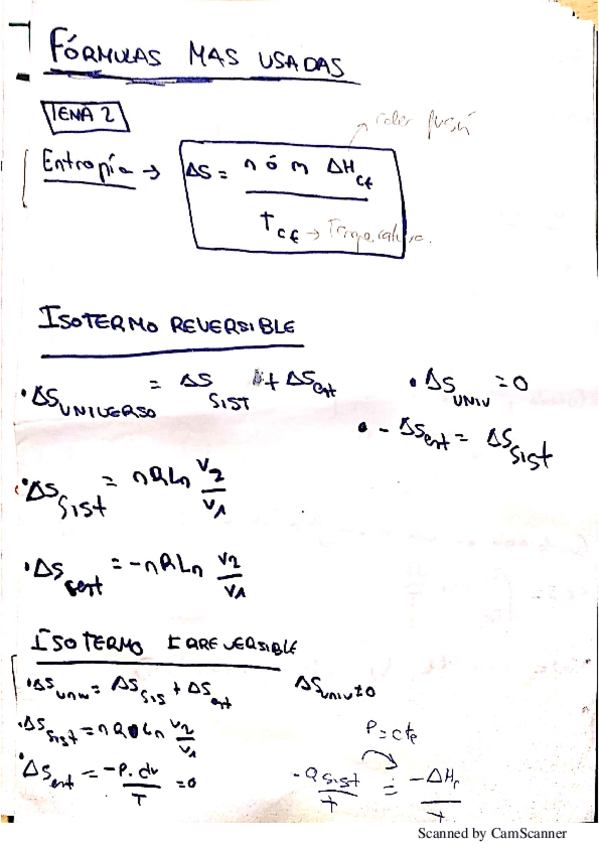 FÓRMULAS MAS USADAS
TEMA 2
Entropía → ΔS = n ó m ΔHcf / Tcf
→ calor
→ Temperatura.
ISOTERMO REVERSIBLE
• ΔS UNIVERSO = ΔS SIST + ΔS ent
• ΔS UNIV = 0
• - ΔS ent = ΔS SIST
• ΔS SIST = nRLn V2/V1
• ΔS ent = -nRLn V2/V1
ISOTERMO IRREVERSIBLE
• ΔS univ = ΔS SIS + ΔS ent
ΔS UNIV ≠ 0
• ΔS SIST = nR Ln V2/V1
P = cte
• ΔS ent = -P. dv / T = 0
- Q SIST / T = -ΔHr / T
Scanned by CamScanner